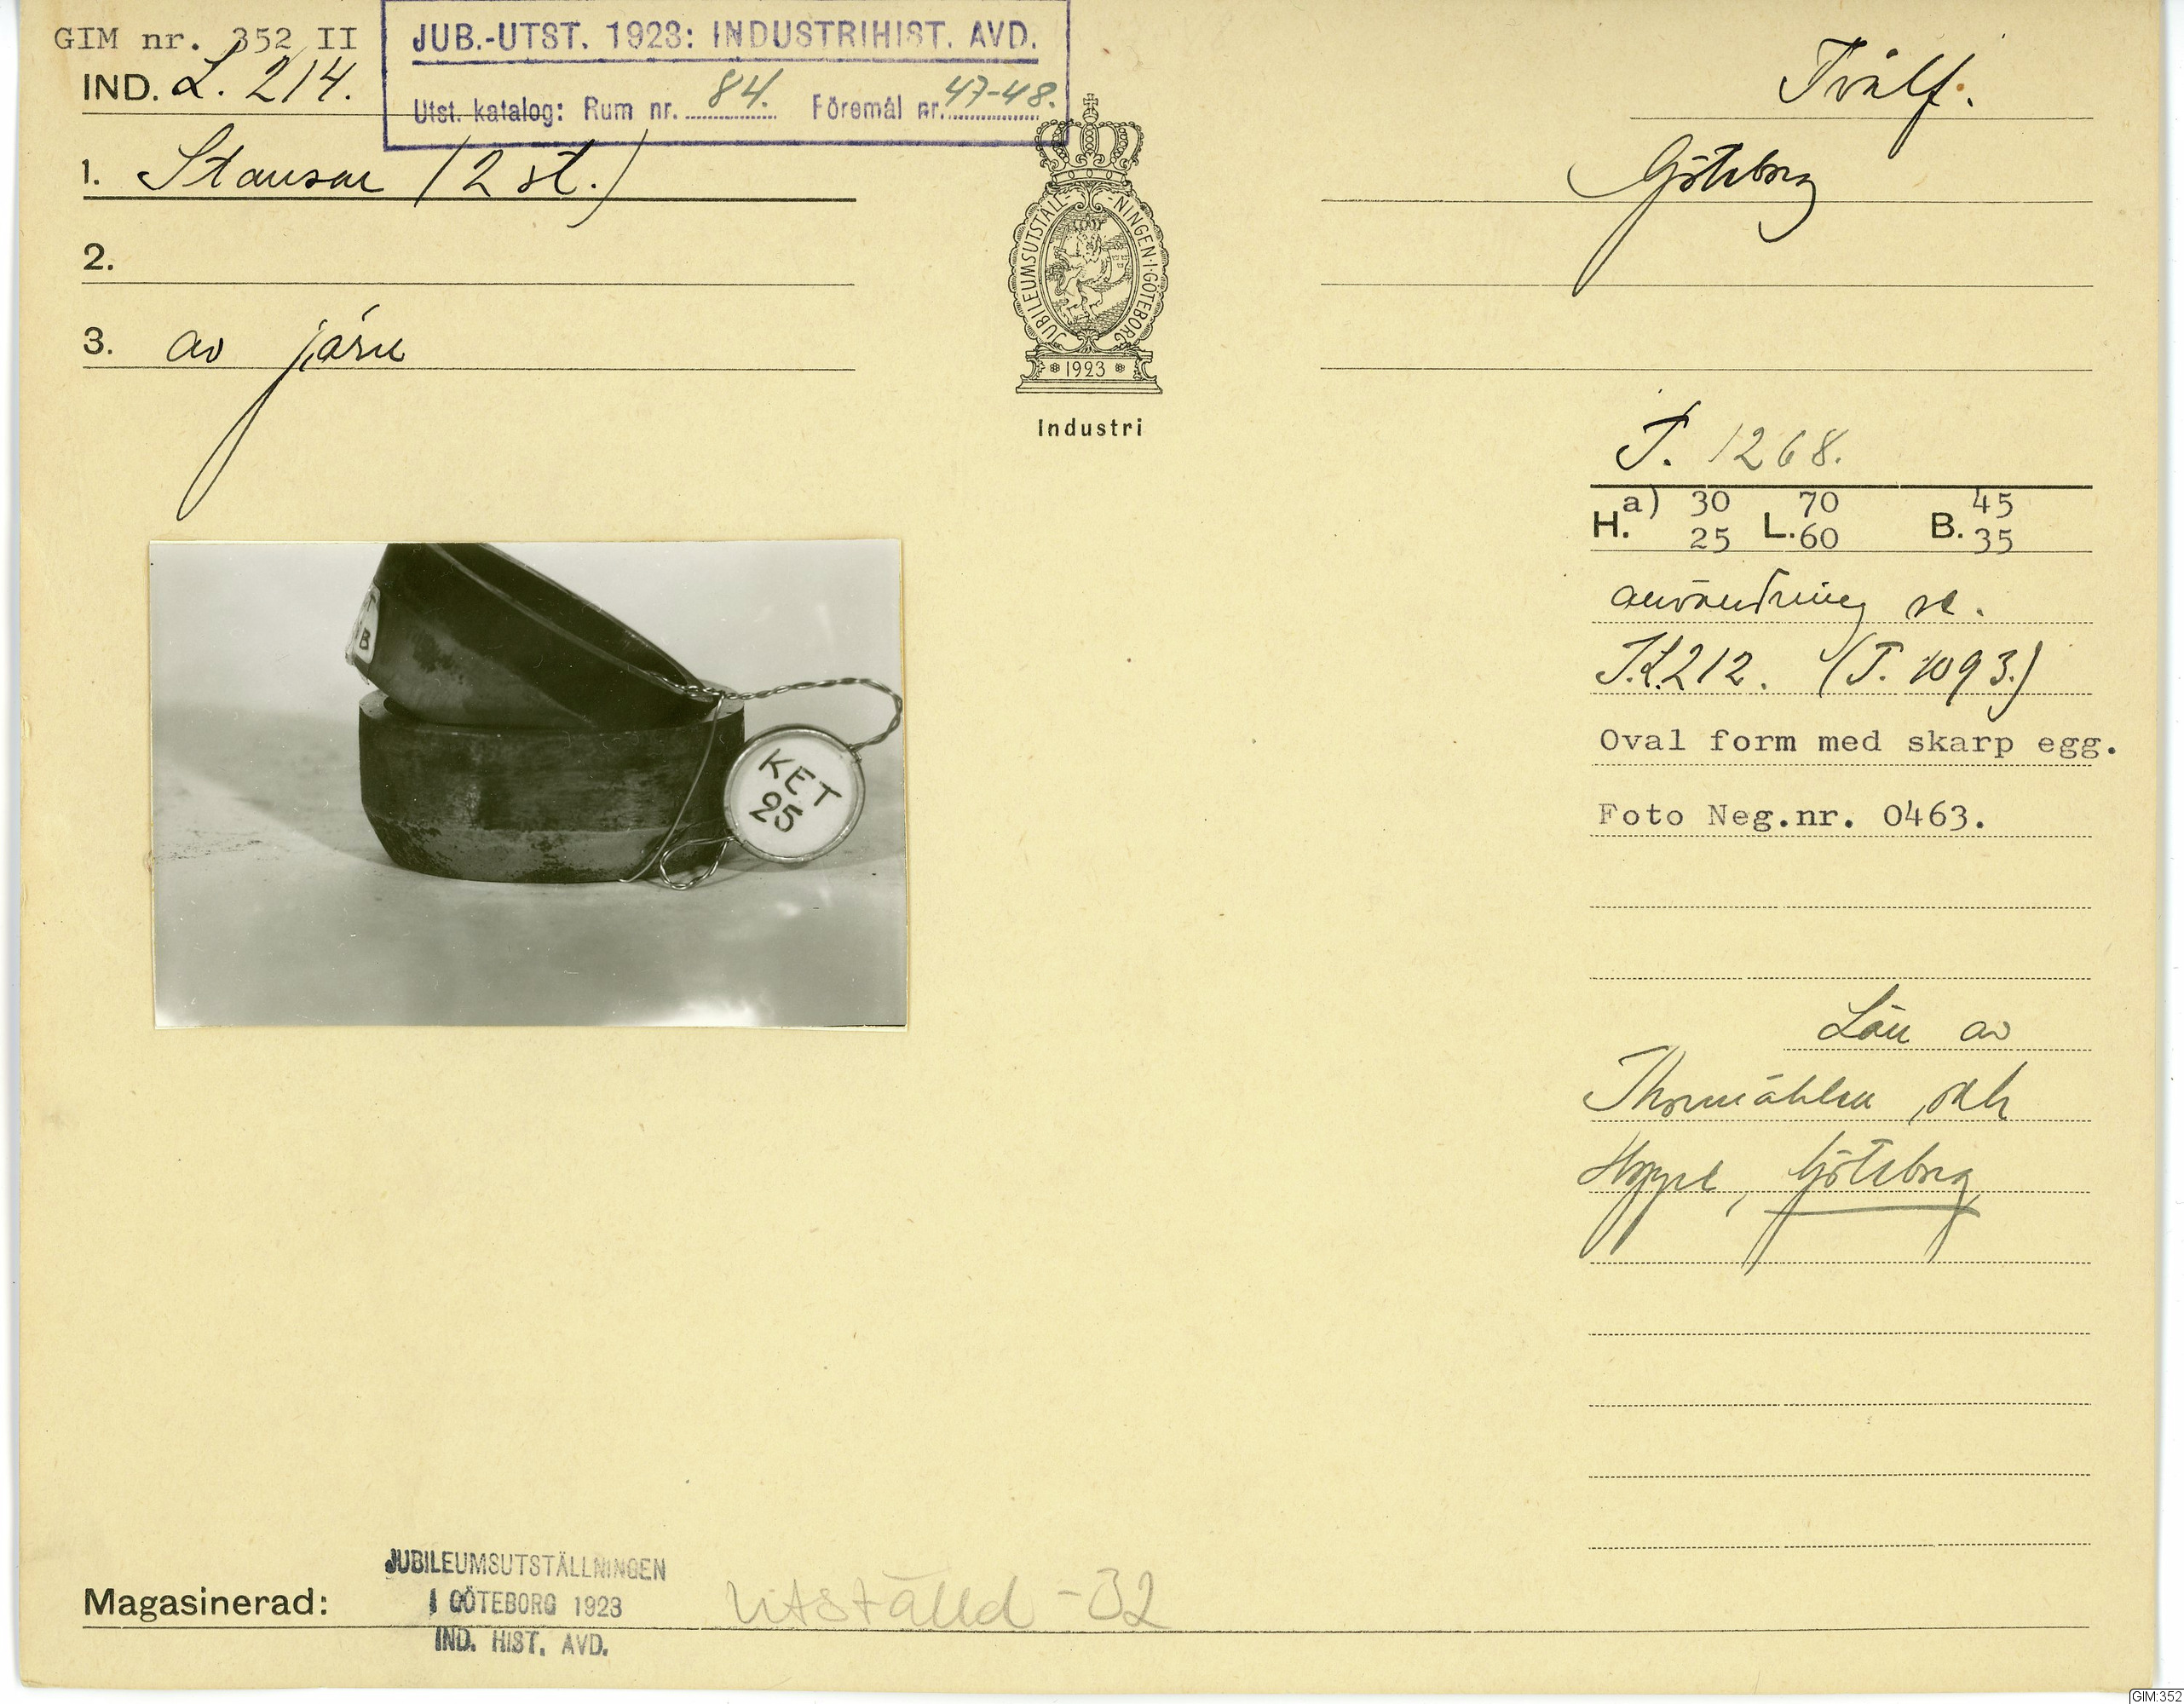 GIM nr. 352 II
IND. L. 214.
JUB.-UTST. 1923: INDUSTRIHIST. AVD.
Utst. katalog: Rum nr. 84. Föremål nr. 47-48.
1. Stansar (2 st.)
2.
3. av järn
JUBILEUMSUTSTÄLL-NINGEN·I·GÖTEBORG
1923
Industri
Tvålf.
Göteborg
T. 1268.
a) 30 70 45
H. 25 L. 60 B. 35
användning se.
212. (T. 1093.)
Oval form med skarp egg.
Foto Neg.nr. 0463.
B
KET
25
Lån av
Thormählen och
Hoppe, Göteborg
Magasinerad:
JUBILEUMSUTSTÄLLNINGEN
I GÖTEBORG 1923
IND. HIST. AVD.
Utställd -32
GIM:352